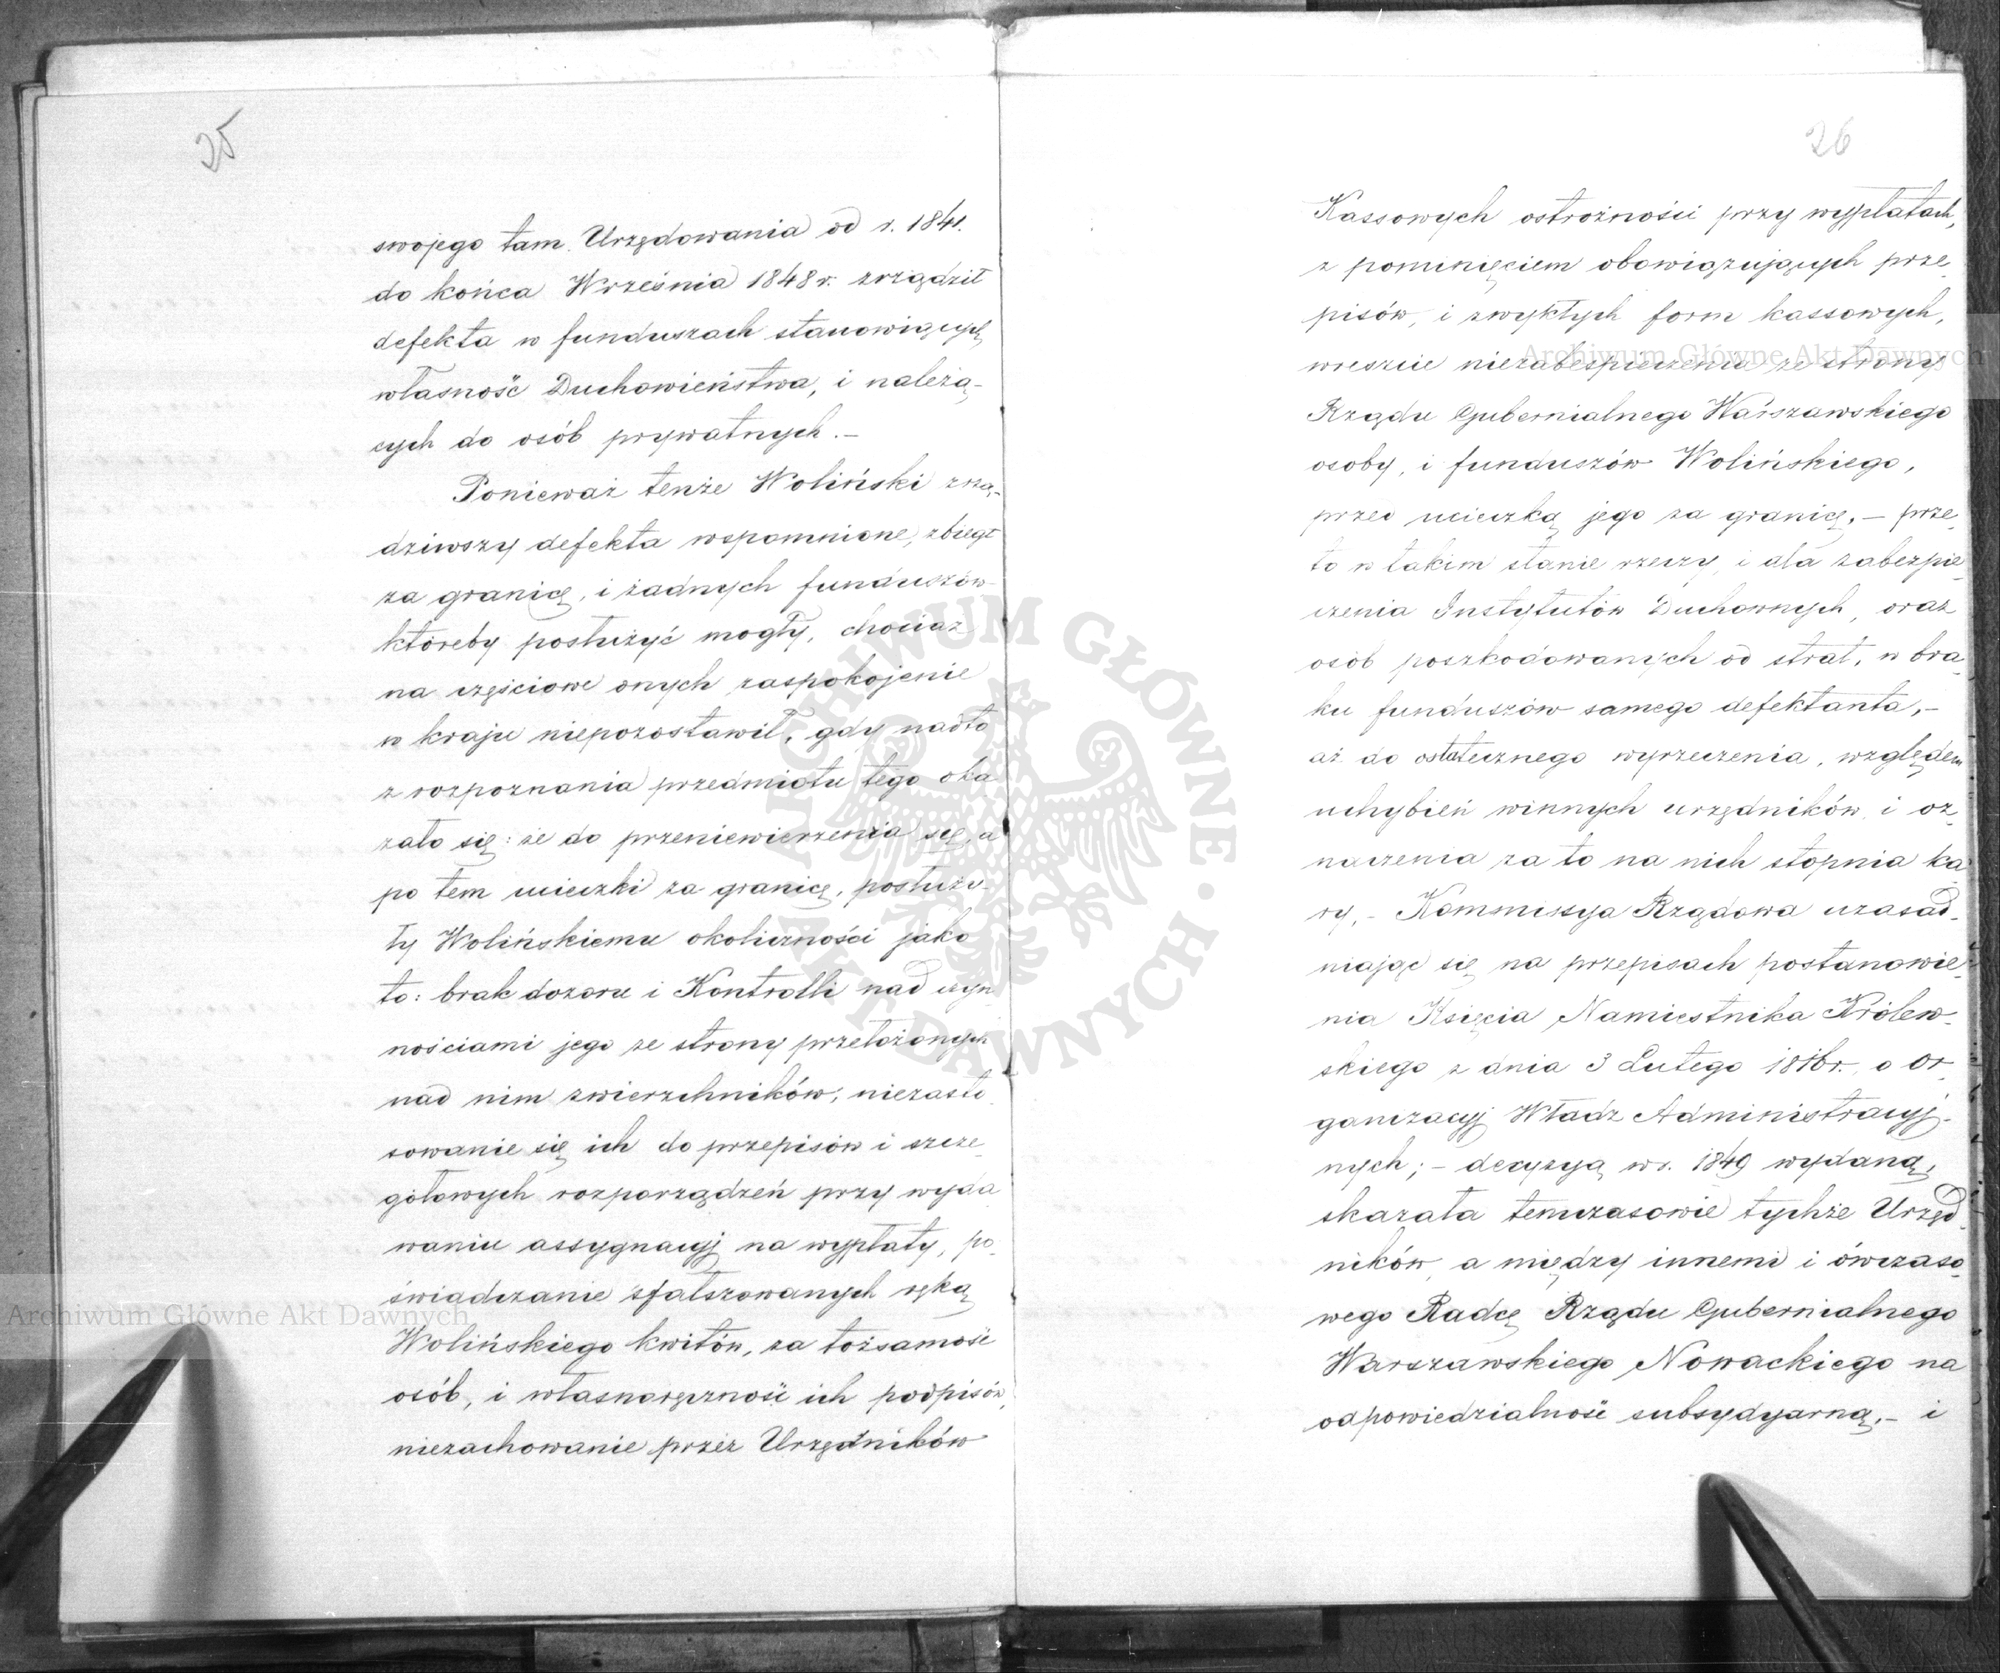 25
swojego tam Urzędowania od r. 1841.
do końca Września 1848 r. zrządził
defekta w funduszach stanowiących
własność Duchowieństwa, i należą-
cych do osób prywatnych.—
Ponieważ tenże Woliński zrzą-
dziwszy defekta wspomnione, zbiegł
za granicę, i żadnych funduszów
któreby posłużyć mogły, chociaż
na częściowe onych zaspokojenie
w kraju niepozostawił, gdy nadto
z rozpoznania przedmiotu tego oka
zało się: że do przeniewierzenia się, a
po tem ucieczki za granicę, posłuży-
ły Wolińskiemu okoliczności jako
to: brak dozoru i Kontrolli nad czyn
nościami jego ze strony przełożonych
nad nim zwierzchników; niezasto
sowanie się ich do przepisów i szcze
gółowych rozporządzeń przy wyda
waniu assygnacyj na wypłaty, po-
świadczanie sfałszowanych ręką
Wolińskiego kwitów, za tożsamość
osób, i własnoręczność ich podpisów,
niezachowanie przez Urzędników
26
Kassowych ostrożności przy wypłatach,
z pominięciem obowiązujących prze-
pisów, i zwykłych form kassowych,
wreszcie niezabespieczenia ze strony
Rządu Gubernialnego Warszawskiego
osoby, i funduszów Wolińskiego,
przed ucieczką jego za granicę,— prze-
to w takim stanie rzeczy, i dla zabezpie-
czenia Instytutów Duchownych, oraz
osób poszkodowanych od strat, w bra-
ku funduszów samego defektanta,—
aż do ostatecznego wyrzeczenia, względem
uchybień winnych urzędników, i oz-
naczenia za to na nich stopnia ka
ry,— Kommissya Rządowa uzasad-
niając się na przepisach postanowie-
nia Księcia Namiestnika Królew-
skiego z dnia 3 Lutego 1816 r. o Or-
ganizacyj Władz Administracyj-
nych;— decyzyą w r. 1849 wydaną,
skazała temczasowie tychże Urzęd-
ników, a między innemi i ówczaso-
wego Radcę Rządu Gubernialnego
Warszawskiego Nowackiego na
odpowiedzialność subsydyarną,— i
Archiwum Główne Akt Dawnych
Archiwum Główne Akt Dawnych
ARCHIWUM GŁÓWNE AKT DAWNYCH